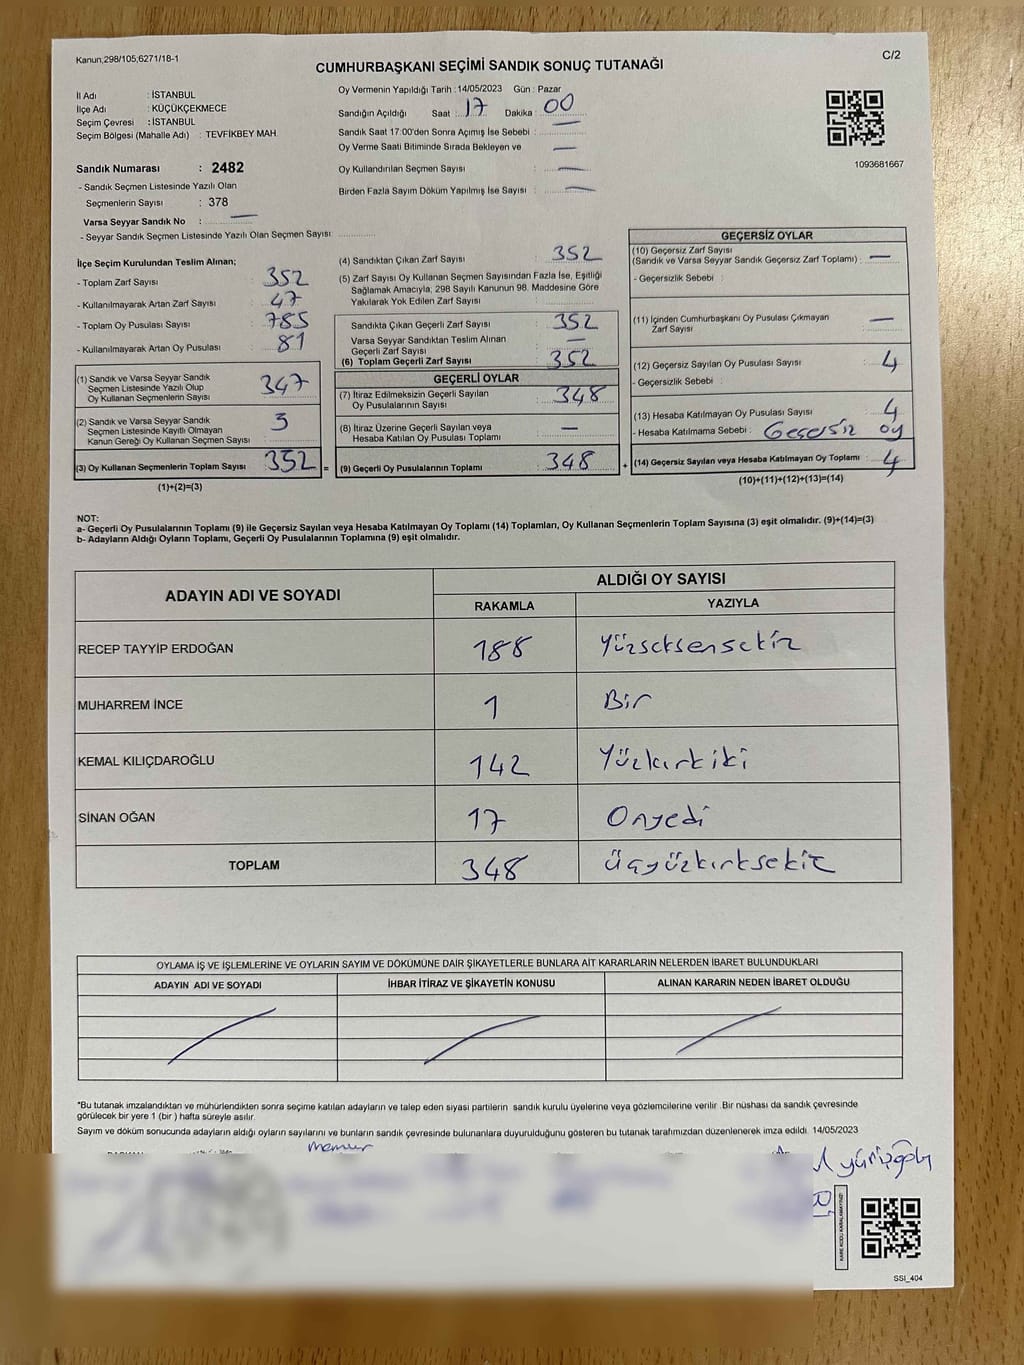 Kanun,298/105;6271/18-1
C/2
CUMHURBAŞKANI SEÇİMİ SANDIK SONUÇ TUTANAĞI
İl Adı : İSTANBUL
İlçe Adı : KÜÇÜKÇEKMECE
Seçim Çevresi : İSTANBUL
Seçim Bölgesi (Mahalle Adı) : TEVFİKBEY MAH.
Sandık Numarası : 2482
- Sandık Seçmen Listesinde Yazılı Olan
Seçmenlerin Sayısı : 378
Varsa Seyyar Sandık No :
- Seyyar Sandık Seçmen Listesinde Yazılı Olan Seçmen Sayısı:
Oy Vermenin Yapıldığı Tarih :14/05/2023 Gün : Pazar
Sandığın Açıldığı Saat : 17 Dakika : 00
Sandık Saat 17:00'den Sonra Açılmış İse Sebebi :
Oy Verme Saati Bitiminde Sırada Bekleyen ve
Oy Kullandırılan Seçmen Sayısı :
Birden Fazla Sayım Döküm Yapılmış İse Sayısı :
1093681667
İlçe Seçim Kurulundan Teslim Alınan;
- Toplam Zarf Sayısı : 352
- Kullanılmayarak Artan Zarf Sayısı : 47
- Toplam Oy Pusulası Sayısı : 785
- Kullanılmayarak Artan Oy Pusulası : 81
(1) Sandık ve Varsa Seyyar Sandık
Seçmen Listesinde Yazılı Olup
Oy Kullanan Seçmenlerin Sayısı : 347
(2) Sandık ve Varsa Seyyar Sandık
Seçmen Listesinde Kayıtlı Olmayan
Kanun Gereği Oy Kullanan Seçmen Sayısı : 3
(3) Oy Kullanan Seçmenlerin Toplam Sayısı : 352 =
(1)+(2)=(3)
(4) Sandıktan Çıkan Zarf Sayısı : 352
(5) Zarf Sayısı Oy Kullanan Seçmen Sayısından Fazla İse, Eşitliği
Sağlamak Amacıyla; 298 Sayılı Kanunun 98. Maddesine Göre
Yakılarak Yok Edilen Zarf Sayısı :
Sandıkta Çıkan Geçerli Zarf Sayısı : 352
Varsa Seyyar Sandıktan Teslim Alınan
Geçerli Zarf Sayısı :
(6) Toplam Geçerli Zarf Sayısı : 352
GEÇERLİ OYLAR
(7) İtiraz Edilmeksizin Geçerli Sayılan
Oy Pusulalarının Sayısı : 348
(8) İtiraz Üzerine Geçerli Sayılan veya
Hesaba Katılan Oy Pusulası Toplamı :
(9) Geçerli Oy Pusulalarının Toplamı : 348 +
GEÇERSİZ OYLAR
(10) Geçersiz Zarf Sayısı
(Sandık ve Varsa Seyyar Sandık Geçersiz Zarf Toplamı) :
- Geçersizlik Sebebi :
(11) İçinden Cumhurbaşkanı Oy Pusulası Çıkmayan
Zarf Sayısı :
(12) Geçersiz Sayılan Oy Pusulası Sayısı : 4
- Geçersizlik Sebebi :
(13) Hesaba Katılmayan Oy Pusulası Sayısı : 4
- Hesaba Katılmama Sebebi : Geçersiz oy
(14) Geçersiz Sayılan veya Hesaba Katılmayan Oy Toplamı : 4
(10)+(11)+(12)+(13)=(14)
NOT:
a- Geçerli Oy Pusulalarının Toplamı (9) ile Geçersiz Sayılan veya Hesaba Katılmayan Oy Toplamı (14) Toplamları, Oy Kullanan Seçmenlerin Toplam Sayısına (3) eşit olmalıdır. (9)+(14)=(3)
b- Adayların Aldığı Oyların Toplamı, Geçerli Oy Pusulalarının Toplamına (9) eşit olmalıdır.
ADAYIN ADI VE SOYADI
ALDIĞI OY SAYISI
RAKAMLA YAZIYLA
RECEP TAYYİP ERDOĞAN 188 Yüzseksensekiz
MUHARREM İNCE 1 Bir
KEMAL KILIÇDAROĞLU 142 Yüzkırkiki
SİNAN OĞAN 17 Onyedi
TOPLAM 348 üçyüzkırksekiz
OYLAMA İŞ VE İŞLEMLERİNE VE OYLARIN SAYIM VE DÖKÜMÜNE DAİR ŞİKAYETLERLE BUNLARA AİT KARARLARIN NELERDEN İBARET BULUNDUKLARI
ADAYIN ADI VE SOYADI İHBAR İTİRAZ VE ŞİKAYETİN KONUSU ALINAN KARARIN NEDEN İBARET OLDUĞU
*Bu tutanak imzalandıktan ve mühürlendikten sonra seçime katılan adayların ve talep eden siyasi partilerin sandık kurulu üyelerine veya gözlemcilerine verilir. Bir nüshası da sandık çevresinde
görülecek bir yere 1 (bir) hafta süreyle asılır.
Sayım ve döküm sonucunda adayların aldığı oyların sayılarını ve bunların sandık çevresinde bulunanlara duyurulduğunu gösteren bu tutanak tarafımızdan düzenlenerek imza edildi. 14/05/2023
memur
KARE KODU KARALAMAYINIZ!
SSI_404